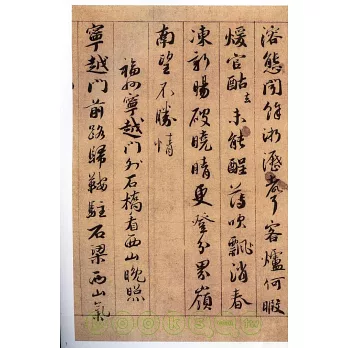 溶態聞餘淅瀝聲客爐何暇
煖官酤去未能醒薄吹飄消春
凍新暘破曉晴更登分界嶺
南望不勝情
福州寧越門外石橋看西山晚照
寧越門前路歸鞍駐石梁西山氣